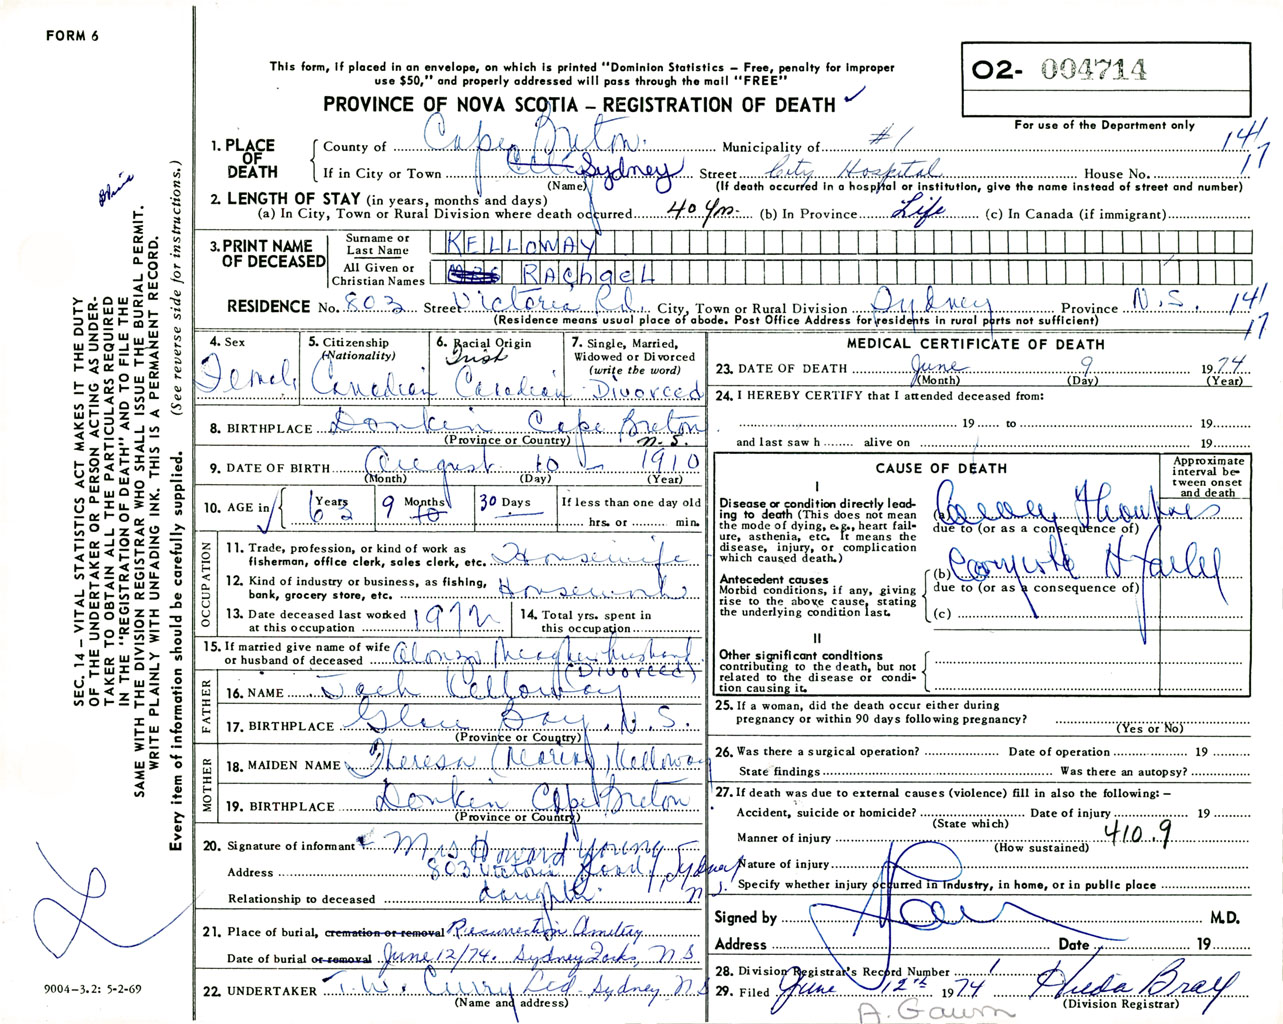 FORM 6
This form, if placed in an envelope, on which is printed "Dominion Statistics – Free, penalty for improper
use $50," and properly addressed will pass through the mail "FREE"
O2- 004714
PROVINCE OF NOVA SCOTIA – REGISTRATION OF DEATH ✓
For use of the Department only
1. PLACE OF DEATH
County of Cape Breton. Municipality of #1
141
If in City or Town Sydney Street City Hospital House No.
17
(Name) (If death occurred in a hospital or institution, give the name instead of street and number)
2. LENGTH OF STAY (in years, months and days)
(a) In City, Town or Rural Division where death occurred 40 Yrs. (b) In Province Life (c) In Canada (if immigrant)
3. PRINT NAME OF DECEASED
Surname or Last Name KELLOWAY
All Given or Christian Names RAChaEL
RESIDENCE No. 803 Street Victoria Rd. City, Town or Rural Division Sydney Province N.S. 141
(Residence means usual place of abode. Post Office Address for residents in rural parts not sufficient)
17
4. Sex Female
5. Citizenship (Nationality) Canadian
6. Racial Origin Irish Canadian
7. Single, Married, Widowed or Divorced (write the word) Divorced
8. BIRTHPLACE Donkin Cape Breton
(Province or Country) N.S.
9. DATE OF BIRTH August 10 1910
(Month) (Day) (Year)
10. AGE in 63 Years 9 Months 30 Days If less than one day old
hrs. or min.
OCCUPATION
11. Trade, profession, or kind of work as
fisherman, office clerk, sales clerk, etc. Housewife
12. Kind of industry or business, as fishing,
bank, grocery store, etc. Housework
13. Date deceased last worked at this occupation 1972
14. Total yrs. spent in this occupation
15. If married give name of wife
or husband of deceased Alonzo Meagher husband
(Divorced)
FATHER
16. NAME Jack Kelloway
17. BIRTHPLACE Glace Bay, N.S.
(Province or Country)
MOTHER
18. MAIDEN NAME Theresa Kelloway
19. BIRTHPLACE Donkin Cape Breton
(Province or Country)
20. Signature of informant Mrs Howard Young
Address 803 Victoria Road, Sydney N.S.
Relationship to deceased daughter
21. Place of burial, cremation or removal Resurrection Cemetery
Date of burial or removal June 12/74. Sydney Forks, N.S.
22. UNDERTAKER T.W. Curry Ltd. Sydney N.S
(Name and address)
MEDICAL CERTIFICATE OF DEATH
23. DATE OF DEATH June 9 1974
(Month) (Day) (Year)
24. I HEREBY CERTIFY that I attended deceased from:
19 to 19
and last saw h alive on 19
CAUSE OF DEATH
Approximate interval between onset and death
I
Disease or condition directly lead-
ing to death (This does not mean
the mode of dying, e.g., heart fail-
ure, asthenia, etc. It means the
disease, injury, or complication
which caused death.)
(a)
due to (or as a consequence of)
Antecedent causes
Morbid conditions, if any, giving
rise to the above cause, stating
the underlying condition last.
(b)
due to (or as a consequence of)
(c)
II
Other significant conditions
contributing to the death, but not
related to the disease or condi-
tion causing it.
25. If a woman, did the death occur either during
pregnancy or within 90 days following pregnancy?
(Yes or No)
26. Was there a surgical operation? Date of operation 19
State findings Was there an autopsy?
27. If death was due to external causes (violence) fill in also the following: –
Accident, suicide or homicide? Date of injury 19
(State which)
Manner of injury 410.9
(How sustained)
Nature of injury
Specify whether injury occurred in industry, in home, or in public place
Signed by M.D.
Address Date 19
28. Division Registrar's Record Number 1
29. Filed June 12th 1974 Hilda Bray
(Division Registrar)
SEC. 14 – VITAL STATISTICS ACT MAKES IT THE DUTY
OF THE UNDERTAKER OR PERSON ACTING AS UNDER-
TAKER TO OBTAIN ALL THE PARTICULARS REQUIRED
IN THE "REGISTRATION OF DEATH" AND TO FILE THE
SAME WITH THE DIVISION REGISTRAR WHO SHALL ISSUE THE BURIAL PERMIT.
WRITE PLAINLY WITH UNFADING INK. THIS IS A PERMANENT RECORD.
Every item of information should be carefully supplied. (See reverse side for instructions.)
9004-3.2: 5-2-69